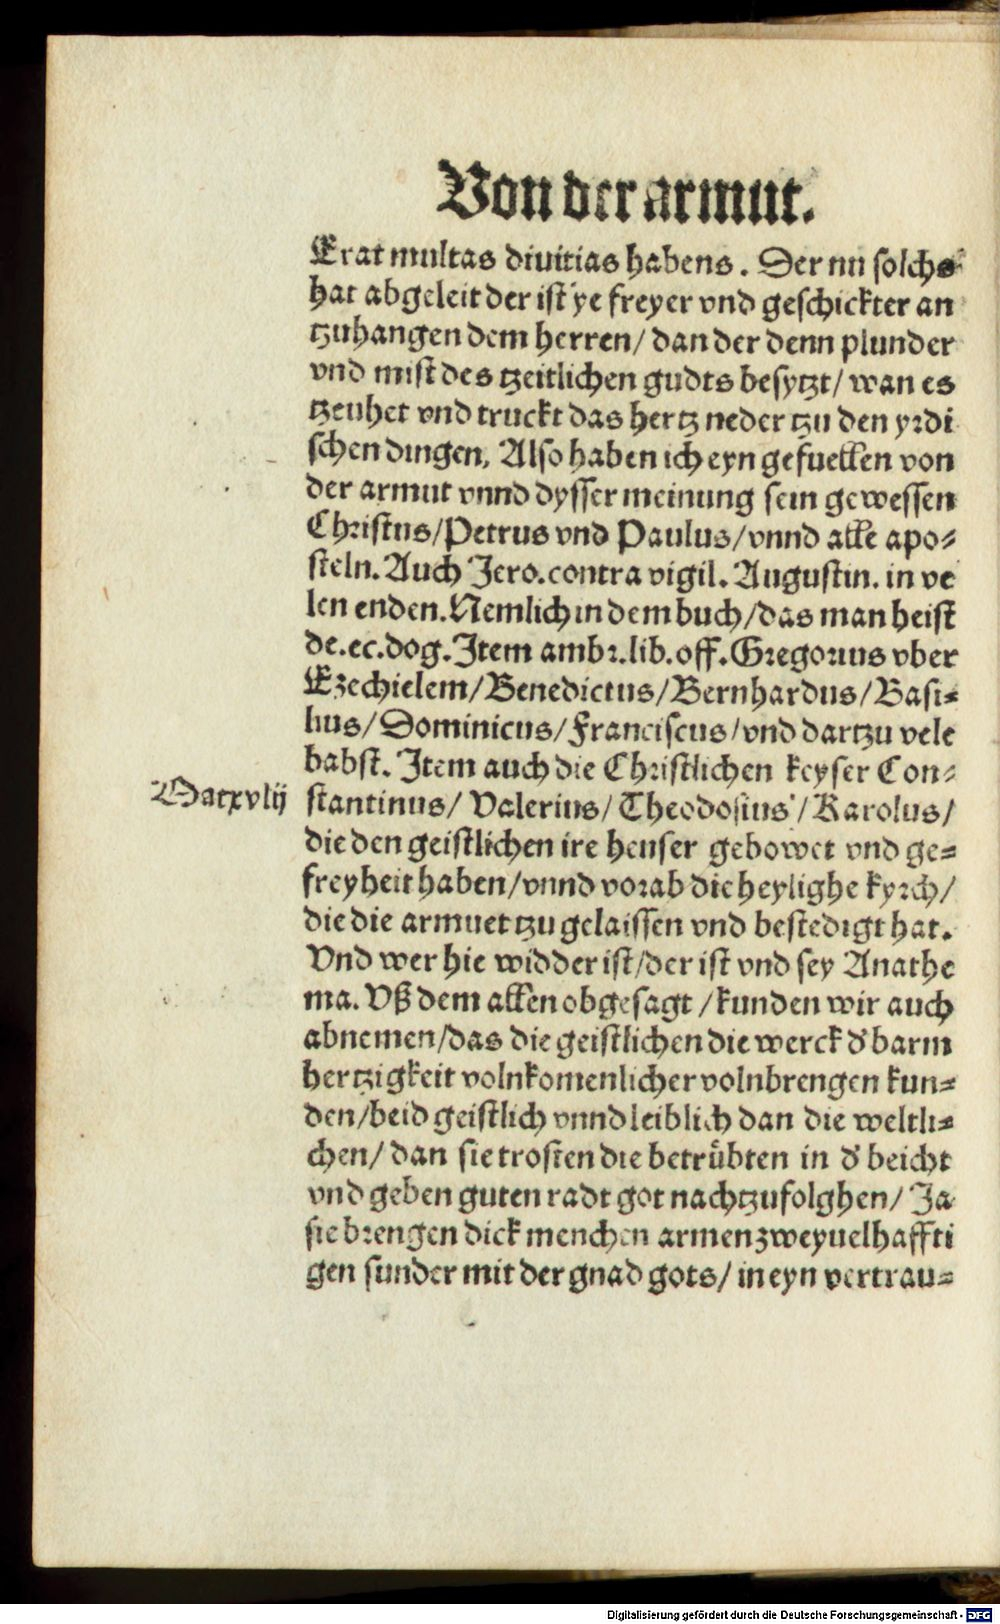 Von der armut.
Erat multas diuitias habens. Der nu solchs
hat abgeleit der ist ye freyer vnd geschickter an
tzuhangen dem herren/ dan der denn plunder
vnd mist des tzeitlichen gudts besytzt/ wan es
tzeuhet vnd truckt das hertz neder tzu den yrdi
schen dingen, Also haben ich eyn gefuellen von
der armut vnnd dysser meinung sein gewessen
Christus/Petrus vnd Paulus/vnnd alle apo-
steln. Auch Jero.contra vigil. Augustin. in ve
len enden. Nemlich in dem buch/das man heist
de.ec.dog. Item ambr.lib.off. Gregorius vber
Ezechielem/Benedictus/Bernhardus/Basi-
lius/Dominicus/Franciscus/vnd dartzu vele
babst. Item auch die Christlichen keyser Con-
Mat xvlij
stantinus/ Valerius/ Theodosius/ Karolus/
die den geistlichen ire heuser gebowet vnd ge-
freyheit haben/vnnd vorab die heylighe kyrch/
die die armuet tzu gelaissen vnd bestedigt hat.
Vnd wer hie widder ist/der ist vnd sey Anathe
ma. Vß dem allen obgesagt /kunden wir auch
abnemen/das die geistlichen die werck d' barm
hertzigkeit volnkomenlicher volnbrengen kun-
den/beid geistlich vnnd leiblich dan die weltli-
chen/ dan sie trosten die betrůbten in d' beicht
vnd geben guten radt got nachtzufolghen/ Ja
sie brengen dick menchen armen zweyuelhaffti
gen sunder mit der gnad gots/ in eyn vertrau-
Digitalisierung gefördert durch die Deutsche Forschungsgemeinschaft - DFG